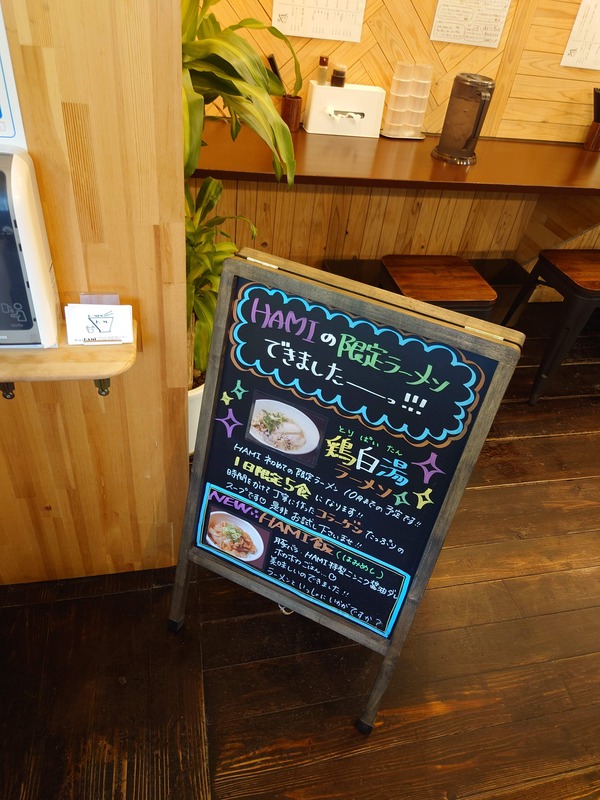 HAMIの限定ラーメン
できましたーーっ!!!
とり ぱい たん
鶏白湯
ラーメン
HAMI初めての限定ラーメン 10月までの予定です!!
1日限定5食になります!!
時間をかけて丁寧に作ったコラーゲンたっぷりの
スープです 是非お試し下さいませ!!
NEW HAMI飯(はみめし)
豚バラ、HAMI特製ニンニク醤油ダレ
ポカポカごはん
美味しいのできました!!
ラーメンといっしょにいかがですか?